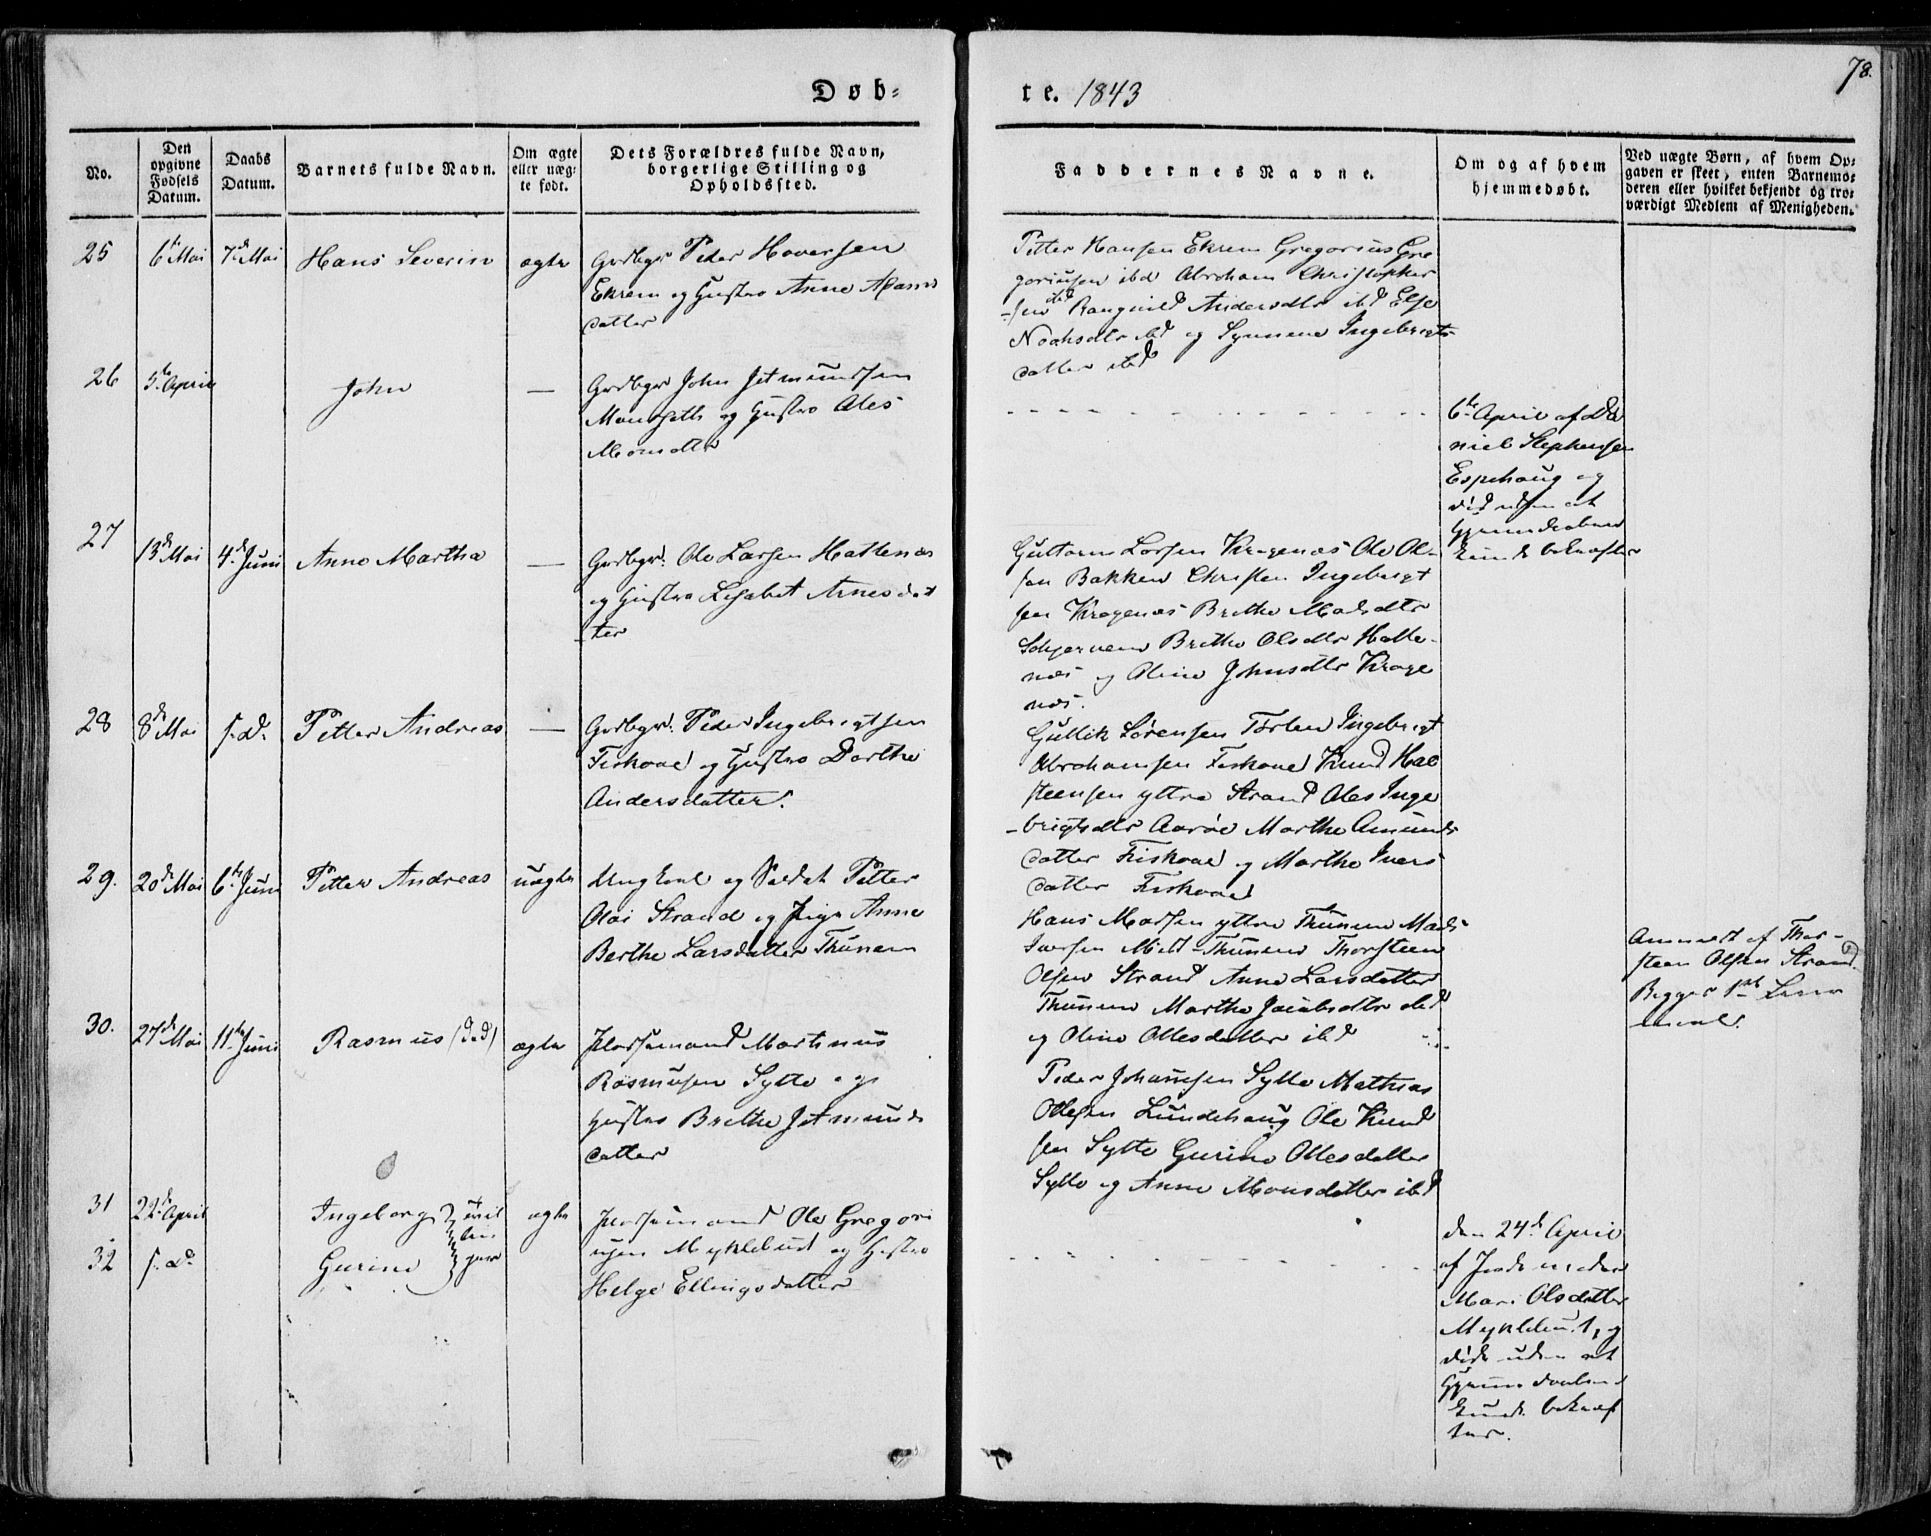 78.
Døb-
te. 1843
No.
Den
opgivne
Fødsels
Datum.
Daabs
Datum.
Barnets fulde Navn.
Om ægte
eller uæg-
te født.
Dets Forældres fulde Navn,
borgerlige Stilling og
Opholdssted.
Faddernes Navne.
Om og af hvem
hjemmedøbt.
Ved uægte Børn, af hvem Op-
gaven er skeet, enten Barnemo-
deren eller hvilket bekjendt og tro-
værdigt Medlem af Menigheden.
25
6te Mai
7de Mai
Hans Severin
ægte
Grdbgr Peder Haversen
Ekrem og Hustro Anne Adams
datter
Petter Hansen Ekrem Gregorius Gre
goriusen ibd Abraham Christopher
sen ibd Rangnild Andersdtr ibd Else
Noahsdtr ibd og Synneve Ingebrigts
datter ibd
26
5te April
John
—
Grdbgr John Jetmundsen
Manseth og Hustro Ales
Monsdtr
6te April af Da
niel Stephensen
Espehaug og
død uden at
bekræftes
27
13de Mai
4de Juni
Anne Martha
—
Grdbgr. Ole Larsen Hattenæs
og Hustro Lisabet Arnesdat
ter
Guttorm Larsen Kragenæs Ole Ol-
sen Bakken Christen Ingebrigt
sen Kragenæs Brethe Madsdtr
Brethe Olsdtr Hatte-
næs og Oline Johnsdtr Krage
næs.
28
8de Mai
s. D.
Petter Andreas
—
Grdbgr. Peder Ingebrigtsen
Fiskaae og Hustro Dorthe
Andersdatter.
Gullik Sørensen Torben Ingebrigt
Abrahamsen Fiskaae Knud Hal
steensen yttre Strand Ales Inge
brigtsdtr Aarøe Marthe Amunds
datter Fiskaae og Marthe Ivers
datter Fiskaae
29.
20de Mai
6te Juni
Petter Andreas
uægte
Ungkarl og Soldat Petter
Olai Strand og Pige Anne
Berthe Larsdatter Thunem
Hans Madsen yttre Thunem Mads
Iversen Midt-Thunem Thorsteen
Olsen Strand Anne Larsdatter
Thunem Marthe Jacobsdtr ibd
og Oline Ottesdatter ibd
Anmeldt af Thor-
steen Olsen Strand.
Begges 1ste Leier
maal.
30.
27de Mai
11te Juni
Rasmus (død)
ægte
Huusmand Martinus
Rasmusen Sytte og
Hustro Brethe Jetmunds
datter
Peder Johannesen Sytte Mathias
Ottesen Lundehaug Ole Knud
sen Sytte Gurine Ottesdatter
Sytte og Anne Monsdatter ibd
31
22de April
Ingeborg
ægte
Huusmand Ole Gregori
usen Myklebust og Hustro
Helge Ellingsdatter
32
s. D.
Gurine
den 24de April
af Jordemoder
Mari Olsdatter
Myklebust, og
døde uden at
bekræf
tes.